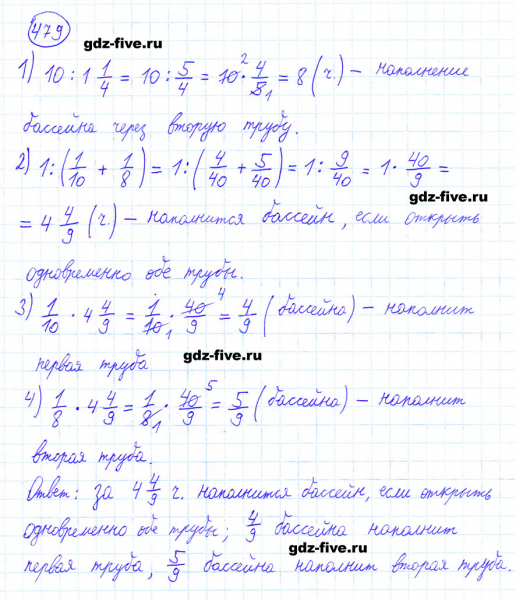 479
gdz-five.ru
1) 10 : 1 1/4 = 10 : 5/4 = 10 · 4/5 = 8 (ч.) – наполнение
2 1
бассейна через вторую трубу.
2) 1 : (1/10 + 1/8) = 1 : (4/40 + 5/40) = 1 : 9/40 = 1 · 40/9 =
gdz-five.ru
= 4 4/9 (ч.) – наполнится бассейн, если открыть
одновременно обе трубы.
3) 1/10 · 4 4/9 = 1/10 · 40/9 = 4/9 (бассейна) – наполнит
1 4
первая труба
gdz-five.ru
4) 1/8 · 4 4/9 = 1/8 · 40/9 = 5/9 (бассейна) – наполнит
1 5
вторая труба.
Ответ: за 4 4/9 ч. наполнится бассейн, если открыть
одновременно обе трубы; 4/9 бассейна наполнит
gdz-five.ru
первая труба, 5/9 бассейна наполнит вторая труба.